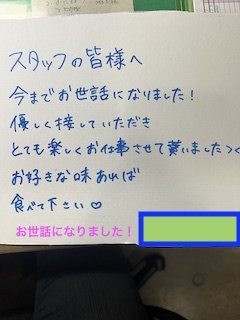 スタッフの皆様へ
今までお世話になりました！
優しく接していただき
とても楽しくお仕事させて貰いました＞＜
お好きな味あれば
食べて下さい♡
お世話になりました！